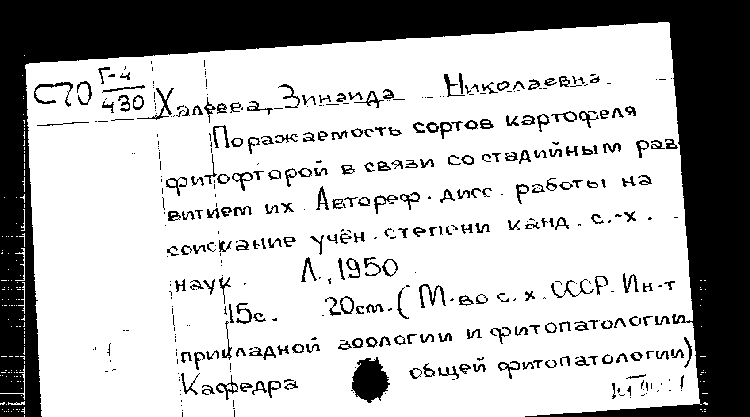 С70 Г-4/430
Халеева, Зинаида Николаевна
Поражаемость сортов картофеля
фитофторой в связи со стадийным раз
витием их. Автореф. дисс. работы на
соискание учён. степени канд. с.-х.
наук. Л., 1950.
15с. 20см. (М-во с.х. СССР. Ин-т
прикладной зоологии и фитопатологии.
Кафедра общей фитопатологии)